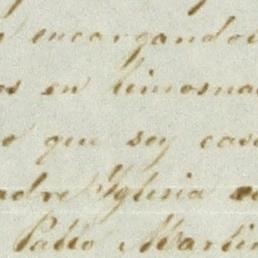 encargando
en limosna
que soy cas
adre Yglesia
Pablo Martin